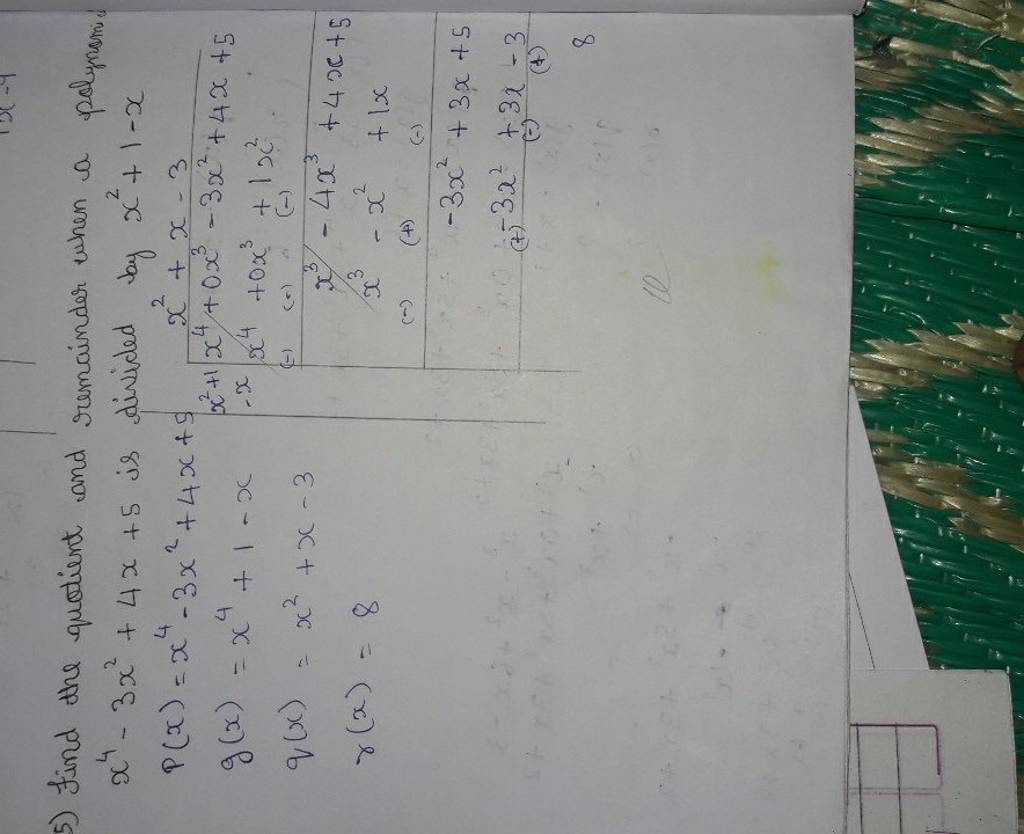 5) Find the quotient and remainder when a polynomi
x⁴ - 3x² + 4x + 5 is divided by x² + 1 - x
P(x) = x⁴ - 3x² + 4x + 5
g(x) = x⁴ + 1 - x
q(x) = x² + x - 3
r(x) = 8
x² + x - 3
x²+1 x⁴ + 0x³ - 3x² + 4x + 5
-x x⁴ + 0x³ + 1x²
(-) (-) (-)
x³ - 4x³ + 4x + 5
x³ - x² + 1x
(-) (+) (-)
-3x² + 3x + 5
-3x² + 3x - 3
(+) (-) (+)
8